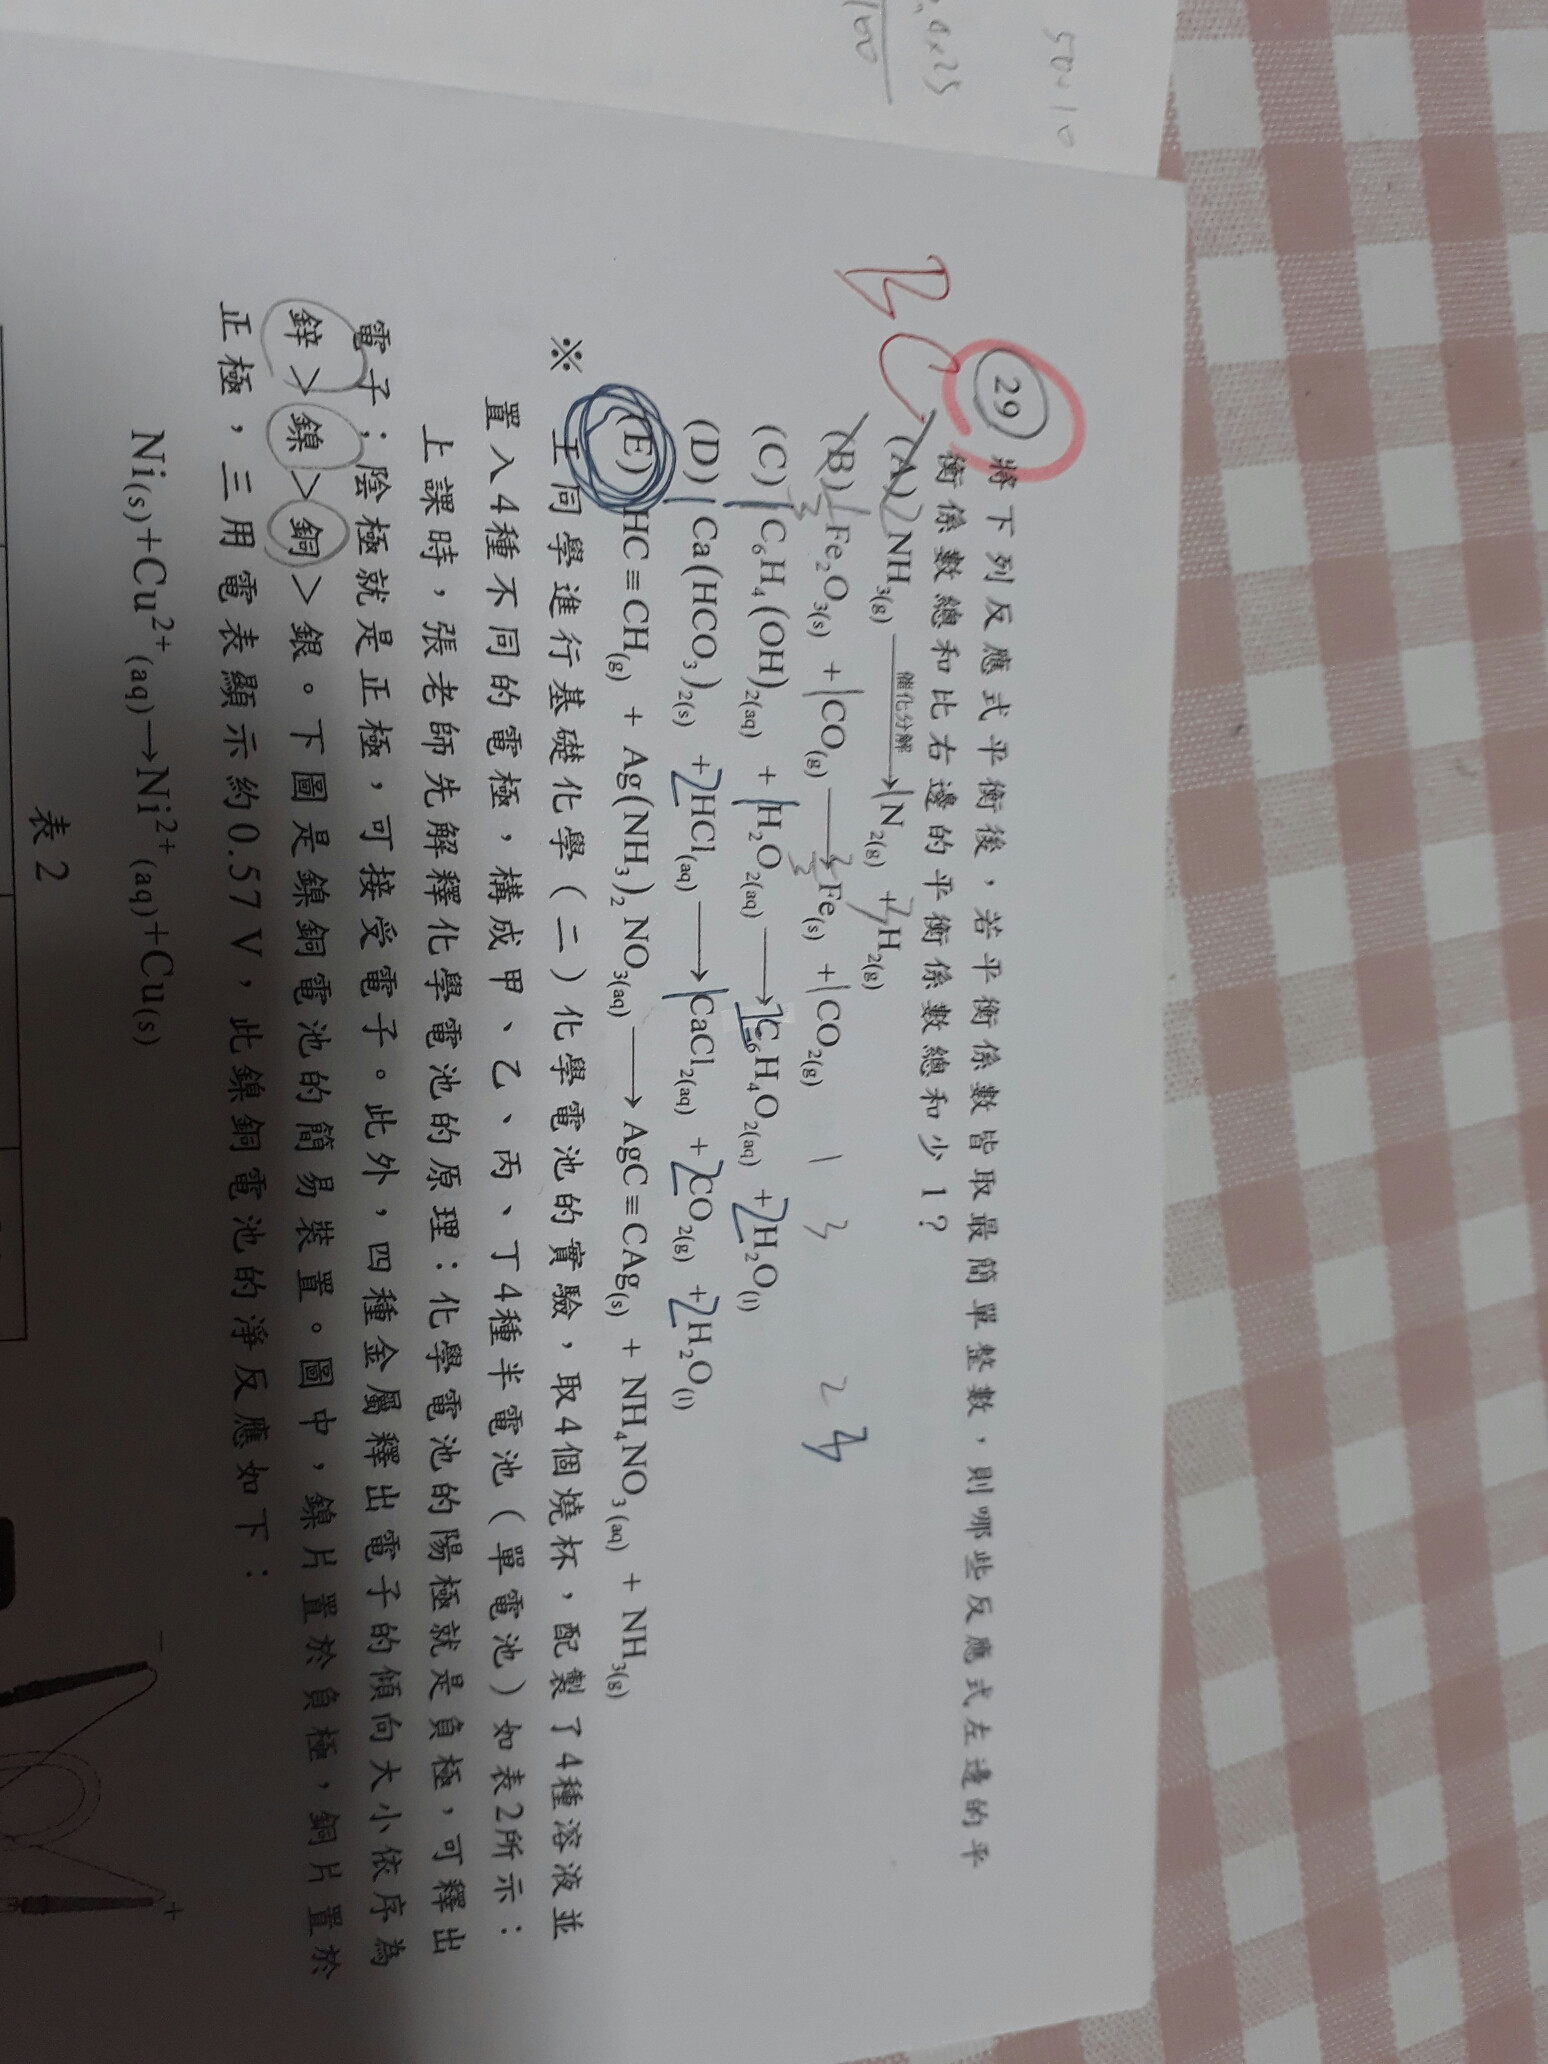 50÷10
4×25
100
BC
29 將下列反應式平衡後，若平衡係數皆取最簡單整數，則哪些反應式左邊的平
衡係數總和比右邊的平衡係數總和少1？
(A) 2NH3(g) ——催化分解→ 1N2(g) + 3H2(g)
(B) 1Fe2O3(s) + 1CO(g) ——→ Fe(s) + 1CO2(g) 1 3 2
(C) 1C6H4(OH)2(aq) + 1H2O2(aq) ——→ 1C6H4O2(aq) + 2H2O(l)
(D) 1Ca(HCO3)2(s) + 2HCl(aq) ——→ 1CaCl2(aq) + 2CO2(g) + 2H2O(l)
(E) HC≡CH(g) + Ag(NH3)2NO3(aq) ——→ AgC≡CAg(s) + NH4NO3(aq) + NH3(g)
※ 王同學進行基礎化學（二）化學電池的實驗，取4個燒杯，配製了4種溶液並
置入4種不同的電極，構成甲、乙、丙、丁4種半電池（單電池）如表2所示：
上課時，張老師先解釋化學電池的原理：化學電池的陽極就是負極，可釋出
電子；陰極就是正極，可接受電子。此外，四種金屬釋出電子的傾向大小依序為
鋅＞鎳＞銅＞銀。下圖是鎳銅電池的簡易裝置。圖中，鎳片置於負極，銅片置於
正極，三用電表顯示約0.57 V，此鎳銅電池的淨反應如下：
Ni(s)+Cu2+(aq)→Ni2+(aq)+Cu(s)
表2
−
+